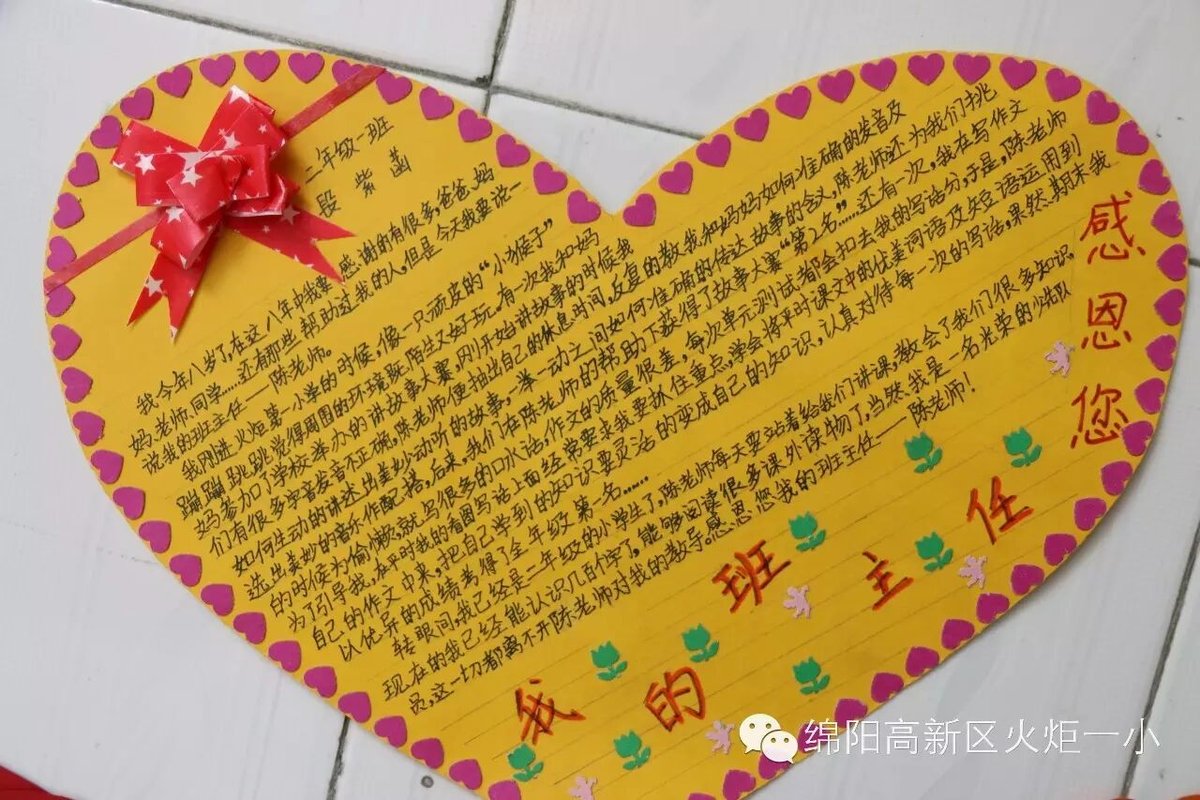 二年级一班
段紫菡
我今年八岁了,在这八年中我要感谢的有很多,爸爸,妈
妈,老师,同学……还有那些帮助过我的人,但是今天我要说一
说我的班主任——陈老师。
我刚进火炬第一小学的时候,像一只顽皮的“小猴子”
蹦蹦跳跳觉得周围的环境既陌生又好玩。有一次我和妈
妈参加了学校举办的讲故事大赛,刚开始讲故事的时候我
们有很多字音发音不正确,陈老师便抽出自己的休息时间,反复的教我和妈妈如何准确的发音及
如何生动的讲述出美妙动听的故事,一举一动之间如何准确的传达故事的含义,陈老师还为我们挑
选出美妙的音乐作配搭,后来,我们在陈老师的帮助下获得了故事大赛“第2名”……还有一次,我在写作文
的时候为偷懒,就写很多的口水话,作文的质量很差,每次单元测试都会扣去我的写话分,于是,陈老师
为了引导我,在平时我的看图写话上面经常要求我要抓住重点,学会将平时课文中的优美词语及短语运用到
自己的作文中来,把自己学到的知识要灵活的变成自己的知识,认真对待每一次的写话,果然期末我
以优异的成绩考得了全年级第一名……
转眼间,我已经是二年级的小学生了,陈老师每天要站着给我们讲课,教会了我们很多知识,
现在的我已经能认识几百个字了,能够阅读很多课外读物了,当然,我是一名光荣的少先队
员,这一切都离不开陈老师对我的教导。感恩您我的班主任——陈老师!
感恩您
我的班主任
绵阳高新区火炬一小